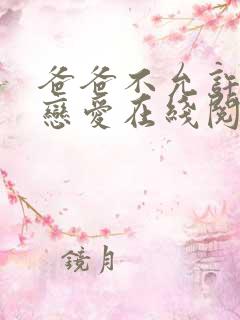 爸爸不允許
戀愛在綫閱
鏡月